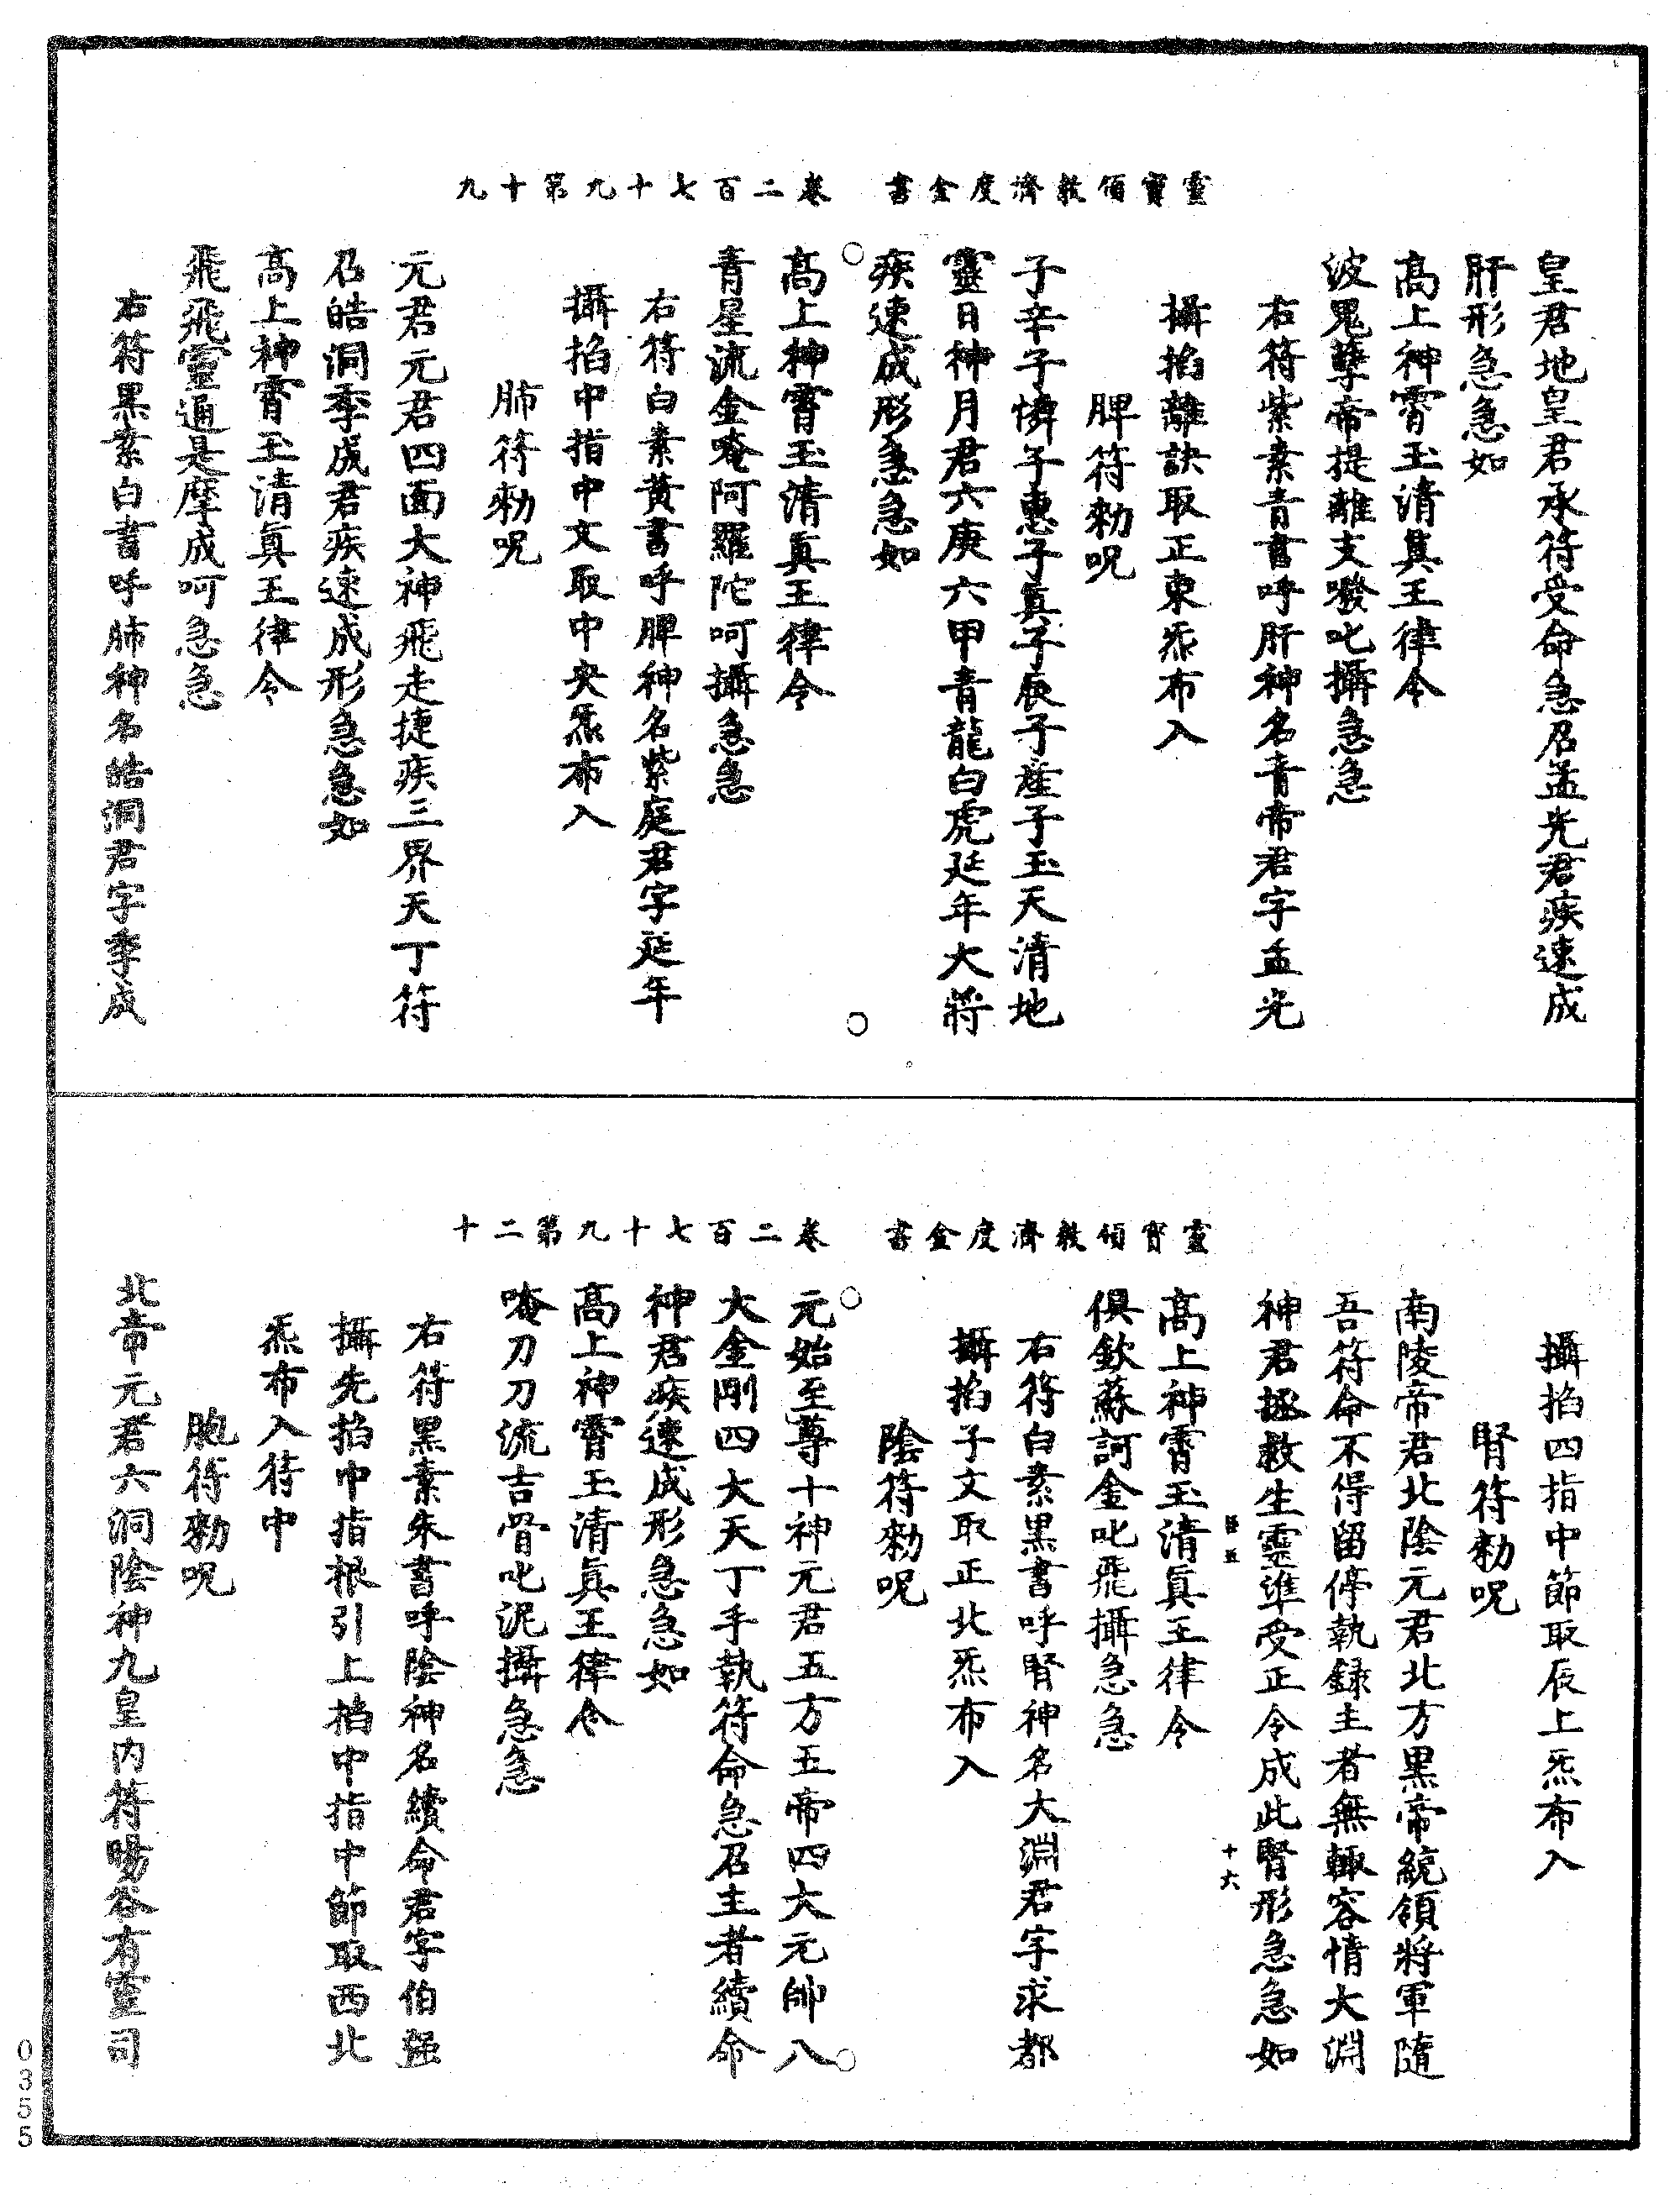 靈寶領教濟度金書　卷二百七十九第十九
皇君地皇君承符受命急召孟光君疾速成
肝形急急如
高上神霄玉清真王律令
波鬼孽帝提離支㗶叱攝急急
右符紫素青書呼肝神名青帝君字孟光
攝掐離訣取正東炁布入
脾符勑呪
子辛子憐子惠子真子辰子產子玉天清地
靈日神月君六庚六甲青龍白虎延年大將
疾速成形急急如
高上神霄玉清真王律令
青星流金唵阿羅陀呵攝急急
右符白素黃書呼脾神名紫庭君字延年
攝掐中指中文取中央炁布入
肺符勑呪
元君元君四面大神飛走捷疾三界天丁符
召皓洞季成君疾速成形急急如
高上神霄玉清真王律令
飛飛霻通是摩成呵急急
右符黑素白書呼肺神名皓洞君字季成
靈寶領教濟度金書　卷二百七十九第二十
攝掐四指中節取辰上炁布入
腎符勑呪
南陵帝君北陰元君北方黑帝統領將軍隨
吾符命不得留停執錄主者無輙容情大淵
神君拯救生靈準受正令成此腎形急急如
十六
高上神霄玉清真王律令
俱欽蘇訶金叱飛攝急急
右符白素黑書呼腎神名大淵君字求都
攝掐子文取正北炁布入
陰符勑呪
元始至尊十神元君五方五帝四大元帥八
大金剛四大天丁手執符命急召主者續命
神君疾速成形急急如
高上神霄玉清真王律令
唵刀刀流吉骨叱泥攝急急
右符黑素朱書呼陰神名續命君字伯强
攝先掐中指根引上掐中指中節取西北
炁布入符中
胞符勑呪
北帝元君六洞陰神九皇内符暘谷有靈司
0355